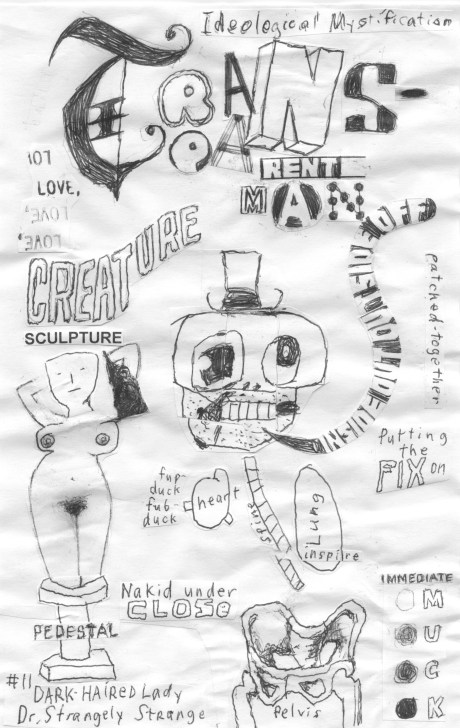 Ideological Mystification
TRANS-
RENTE
MAN
101
LOVE,
LOVE,
LOVE,
CREATURE
SCULPTURE
OFF
patched-together
Putting
the
FIX on
fup-
duck
fub-
duck
heart
Spine
Lung
inspire
IMMEDIATE
M
U
C
K
Nakid under
CLOSE
PEDESTAL
#11
DARK-HAIRED Lady
Dr. Strangely Strange
Pelvis